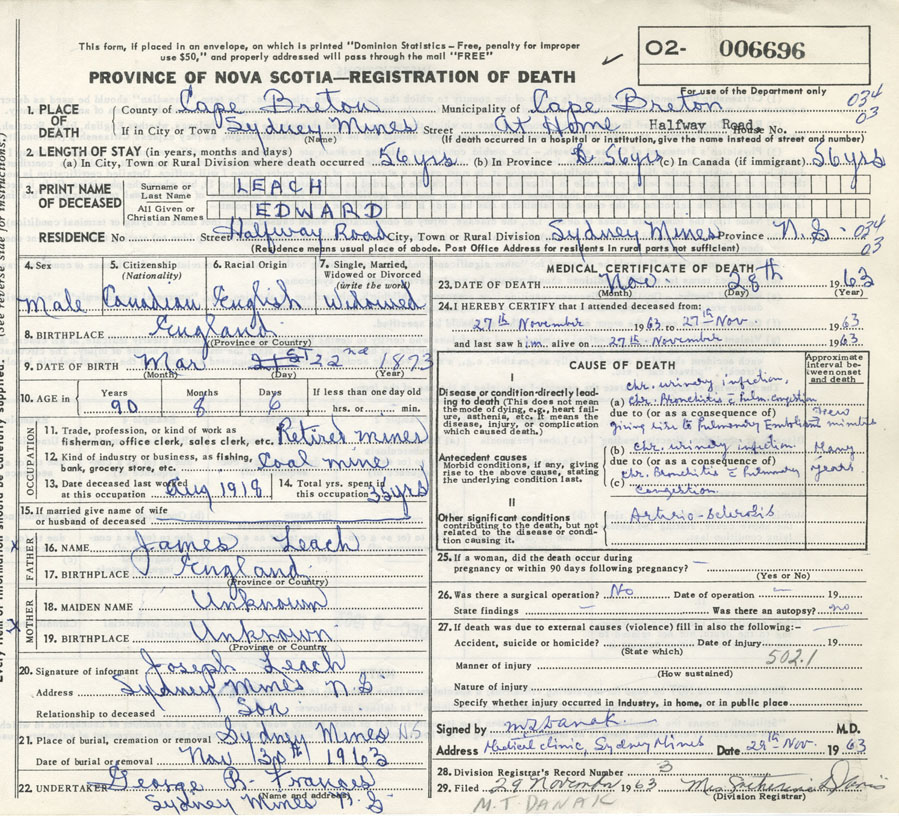 This form, if placed in an envelope, on which is printed "Dominion Statistics – Free, penalty for improper
use $50," and properly addressed will pass through the mail "FREE"
02- 006696
PROVINCE OF NOVA SCOTIA—REGISTRATION OF DEATH
For use of the Department only
1. PLACE OF DEATH County of Cape Breton Municipality of Cape Breton 034
If in City or Town Sydney Mines Street At Home Halfway Road House No. 03
(Name) (If death occurred in a hospital or institution, give the name instead of street and number)
2. LENGTH OF STAY (in years, months and days)
(a) In City, Town or Rural Division where death occurred 56 yrs (b) In Province 56 yrs (c) In Canada (if immigrant) 56 yrs
3. PRINT NAME OF DECEASED Surname or Last Name LEACH
All Given or Christian Names EDWARD
RESIDENCE No Street Halfway Road City, Town or Rural Division Sydney Mines Province N.S. 034
(Residence means usual place of abode. Post Office Address for residents in rural parts not sufficient) 03
4. Sex 5. Citizenship (Nationality) 6. Racial Origin 7. Single, Married, Widowed or Divorced (write the word)
Male Canadian English Widowed
8. BIRTHPLACE England
(Province or Country)
9. DATE OF BIRTH Mar 21st 22nd 1873
(Month) (Day) (Year)
10. AGE in Years Months Days If less than one day old
90 8 6 hrs. or min.
OCCUPATION
11. Trade, profession, or kind of work as
fisherman, office clerk, sales clerk, etc. Retired mines
12. Kind of industry or business, as fishing,
bank, grocery store, etc. Coal mine
13. Date deceased last worked at this occupation Aug 1918 14. Total yrs. spent in this occupation 35 yrs
15. If married give name of wife
or husband of deceased
FATHER
16. NAME James Leach
17. BIRTHPLACE England
(Province or Country)
MOTHER
18. MAIDEN NAME Unknown
19. BIRTHPLACE Unknown
(Province or Country)
20. Signature of informant Joseph Leach
Address Sydney Mines N.S
Relationship to deceased Son
21. Place of burial, cremation or removal Sydney Mines N.S
Date of burial or removal Nov 30th 1963
22. UNDERTAKER George B. Frances
(Name and address)
Sydney Mines N.S
MEDICAL CERTIFICATE OF DEATH
23. DATE OF DEATH Nov. 28th 1963
(Month) (Day) (Year)
24. I HEREBY CERTIFY that I attended deceased from:
27th November 1963 to 27th Nov 1963
and last saw him alive on 27th November 1963
CAUSE OF DEATH
Approximate interval between onset and death
I
Disease or condition directly leading to death (This does not mean the mode of dying, e.g., heart failure, asthenia, etc. It means the disease, injury, or complication which caused death.)
chr. urinary infection,
(a) chr. Bronchitis c Pulm. congestion
due to (or as a consequence of) Few
giving rise to Pulmonary Embolism minutes
Antecedent causes
Morbid conditions, if any, giving rise to the above cause, stating the underlying condition last.
(b) chr. urinary infection Many
due to (or as a consequence of) years
(c) chr. Bronchitis c Pulmonary
Congestion
II
Other significant conditions
contributing to the death, but not related to the disease or condition causing it.
Arterio-Sclerosis
25. If a woman, did the death occur during
pregnancy or within 90 days following pregnancy? –
(Yes or No)
26. Was there a surgical operation? No Date of operation – 19
State findings – Was there an autopsy? no
27. If death was due to external causes (violence) fill in also the following:–
Accident, suicide or homicide? Date of injury 19
(State which) 502.1
Manner of injury
(How sustained)
Nature of injury
Specify whether injury occurred in industry, in home, or in public place
Signed by M.T. Danak M.D.
Address Medical clinic, Sydney Mines Date 29th Nov. 1963
28. Division Registrar's Record Number 3
29. Filed 29 November 1963 Mrs Davis
(Division Registrar)
M.T. DANAK
(See reverse side for instructions.)